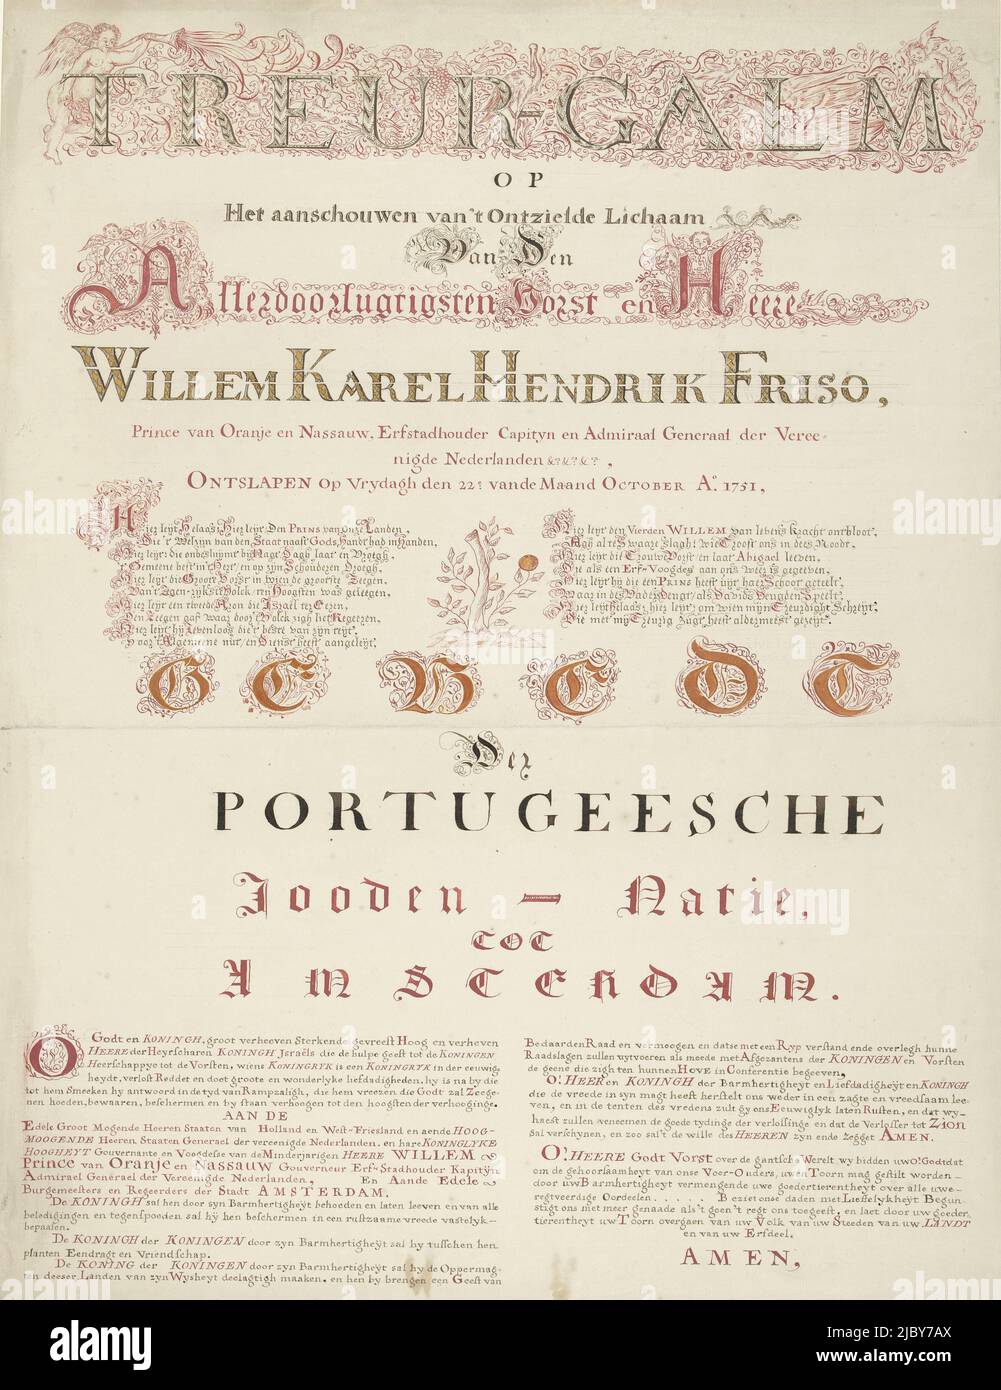 TREUR-GALM
OP
Het aanschouwen van't Ontzielde Lichaam
Van Den
Allerdoorlugtigsten Vorst en Heere
WILLEM KAREL HENDRIK FRISO,
Prince van Oranje en Nassauw, Erfstadhouder Capityn en Admiraal Generaal der Veree-
nigde Nederlanden &c &c &c,
ONTSLAPEN op Vrydagh den 22e vande Maand OCTOBER Ao. 1751,
Hier leyt helaas, Hier leyt Den PRINS van onze Landen,
Die 't Welzyn van den Staat naast Gods Handt had in Handen,
Hier leyt die
't Gemeene best in 't Hert, en op zyn Schouderen Droegh,
Hier leyt die Groote Vorst in wien de grootste Zeegen,
Van 't Zegen-ryke Volck, ten Hoogsten was geleegen,
Hier leyt een tweede
Den Zeegen gaf waar door 't Volck zigh liet Regeeren,
Hier leyt hy Levenloos die 't beste van zyn tyt,
Voor 't Algemeene nut, en Dienst heeft aangeleyt,
Hier leyt den Vierden WILLEM van levens Kracht ontbloot,
Agh al te Swaare Slagh! wie Troost ons in dees Noodt,
Hier leyt die Trouw Vorst en laat Abigael leeven,
Die als een Erf-Voogdes aan ons weer is gegeeven,
Hier leyt hy die een PRINS heeft uyt haer Schoot geteelt,
Waar in des Vaders Deugt, als Davids Deugden Speelt,
Hier leyt helaas, hier leyt, om wien mijn Treurdight Schreyt,
Die met mij Treurig zugt, heeft aldermeest gezeyt.
GEBEDT
Der
PORTUGEESCHE
Jooden - Natie,
TOT
AMSTERDAM.
O Godt en KONINGH, groot verheeven Sterkende gevreest Hoog en verheven
HEERE der Heyrscharen KONINGH Jsraëls die de hulpe geeft tot de KONINGEN
Heerschappye tot de Vorsten, wiens KONINGRYK is een KONINGRYK in der eeuwig,
heydt, verlost Reddet en doet groote en wonderlyke liefdadigheden, hy is na by die
tot hem Smeeken hy antwoord in de tyd van Rampzaligh, die hem vreezen die Godt zal Zeege-
nen hoeden, bewaaren, beschermen en by staan verhoogen tot den hoogsten der verhooginge.
AAN DE
Edele Groot Mogende Heeren Staaten van Holland en West-Friesland en aende HOOG-
MOOGENDE Heeren Staaten Generael der vereenigde Nederlanden, en hare KONINGLYKE
HOOGHEYT Gouvernante en Voogdesse van de Minderjarigen HEERE WILLEM
Prince van Oranje en Nassauw Gouverneur Erf-Stadhouder Kapitÿn
Admirael Generael der Vereenigde Nederlanden, En Aande Edele
Burgemeesters en Regeerders der Stadt AMSTERDAM.
De KONINGH sal hen door syn Barmhertigheyt behoeden en laten leeven en van alle
beledigingen en tegenspooden sal hy hen beschermen in een rustzaame vreede vastelyk-
bepaalen.
De KONINGH der KONINGEN door zyn Barmhertigheÿt sal hy tusschen hen
planten Eendragt en Vriendschap.
De KONING der KONINGEN door zyn Barmhertigheyt sal hy de Oppermag-
ten deeser Landen van zyn Wysheyt deelagtigh maaken, en hen by brengen een Geest van
Bedaarden Raad en vermoogen en dat se met een Ryp verstand ende overlegh hunne
Raadslagen zullen uytvoeren als meede met Afgezantens der KONINGEN en Vorsten
de geene die zigh ten hunnen HOVE in Conferentie begeeven,
O! HEER en KONINGH der Barmhertigheyt en Liefdadigheÿt en KONINGH
die de vreede in syn magt heeft herstelt ons weder in een zagte en vreedsaam lee-
ven, en in de tenten des vredens zult gy ons Eeuwiglyk laten Rusten, en dat wy-
haest zullen verneemen de goede tydinge der verlossinge en dat de Verlosser tot ZION
sal verschynen, en zoo sal't de wille des HEEREN zyn ende zegget AMEN.
O! HEERE Godt Vorst over de gantsche Werelt wy bidden uw O! Godt dat
om de gehoorsaamheyt van onse Voor-Ouders, uwen Toorn mag gestilt worden-
door uw Barmhertigheyt vermengende uwe goedertierentheyt over alle uwe-
regtveerdige Oordeelen . . . . . Beziet onse daden met Lieffelykheÿt Begun-
stigt ons met meer genaade als 't geen 't regt ons toegeeft, en laet door uw goeder-
tierentheyt uw Toorn overgaen van uw Volk van uw Steeden van uw LANDT
en van uw Erfdeel.
AMEN,
alamy
Image ID: 2JBY7AX
www.alamy.com